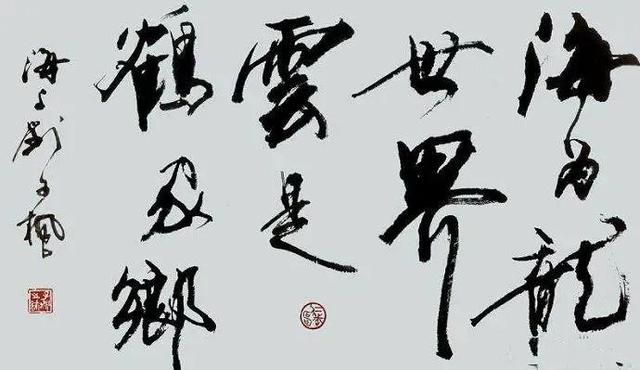 海为龍
世界
雲是
鶴家鄉
海上劉子楓